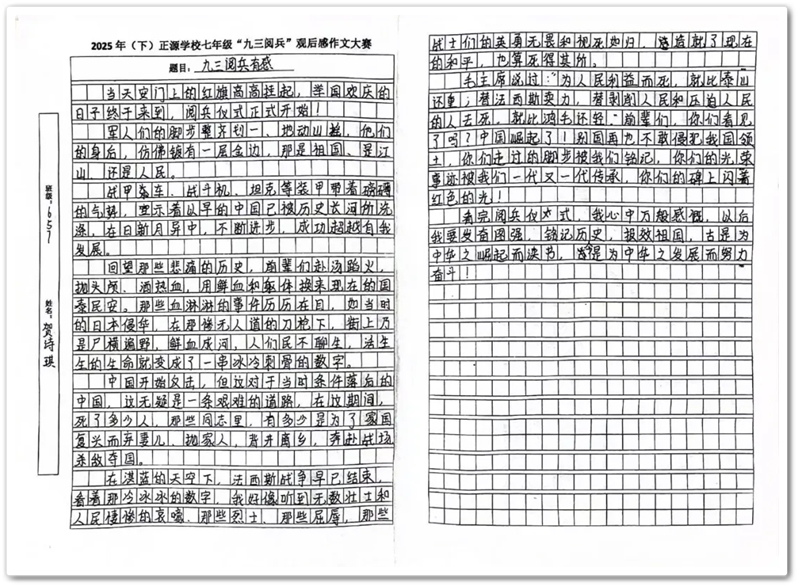 2025年（下）正源学校七年级“九三阅兵”观后感作文大赛
题目：九三阅兵有感
班级：1657
姓名：贺诗琪
当天安门上的红旗高高挂起，举国欢庆的
日子终于来到，阅兵仪式正式开始！
军人们的脚步整齐划一、地动山摇，他们
的身后，仿佛镀有一层金边，那是祖国、是江
山、还是人民。
战甲装车、战斗机、坦克等装甲带着磅礴
的气势，宣示着以早的中国已被历史长河所洗
涤，在日新月异中，不断进步，成功超越有我
发展。
回望那些悲痛的历史，前辈们赴汤蹈火，
抛头颅、洒热血，用鲜血和躯体换来现在的国
泰民安。那些血淋淋的事件历历在目，如当时
的日本侵华，在那惨无人道的刀枪下，街上乃
是尸横遍野，鲜血成河，人们民不聊生，活生
生的生命就变成了一串冰冷刺骨的数字。
中国开始反击，但这对于当时条件落后的
中国，这无疑是一条艰难的道路，在这期间，
死了多少人，那些同志里，有多少是为了家国
复兴而弃妻儿、抛家人，背井离乡，奔赴战场
杀敌夺国。
在湛蓝的天空下，法西斯战争早已结束，
看着那冷冰冰的数字，我好像听到无数壮士和
人民凄惨的哀嚎、那些烈士、那些屈辱，那些
战士们的英勇无畏和视死如归，造就了现在
的和平，也算死得其所。
毛主席说过：“为人民利益而死，就比泰山
还重；替法西斯卖力，替剥削人民和压迫人民
的人去死，就比鸿毛还轻。”前辈们，你们看见
了吗？中国崛起了！别国再也不敢侵犯我国领
土，你们走过的脚步被我们铭记，你们的光荣
事迹被我们一代又一代传承，你们的碑上闪着
红色的光！
看完阅兵仪式，我心中万般感慨，以后
我要发奋图强、铭记历史，报效祖国，古是为
中华之崛起而读书，今是为中华之发展而努力
奋斗！